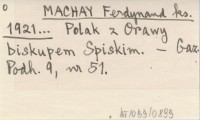 MACHAY Ferdynand ks.
1921... Polak z Orawy
biskupem Spiskim. - Gaz.
Podh. 9, nr 51.